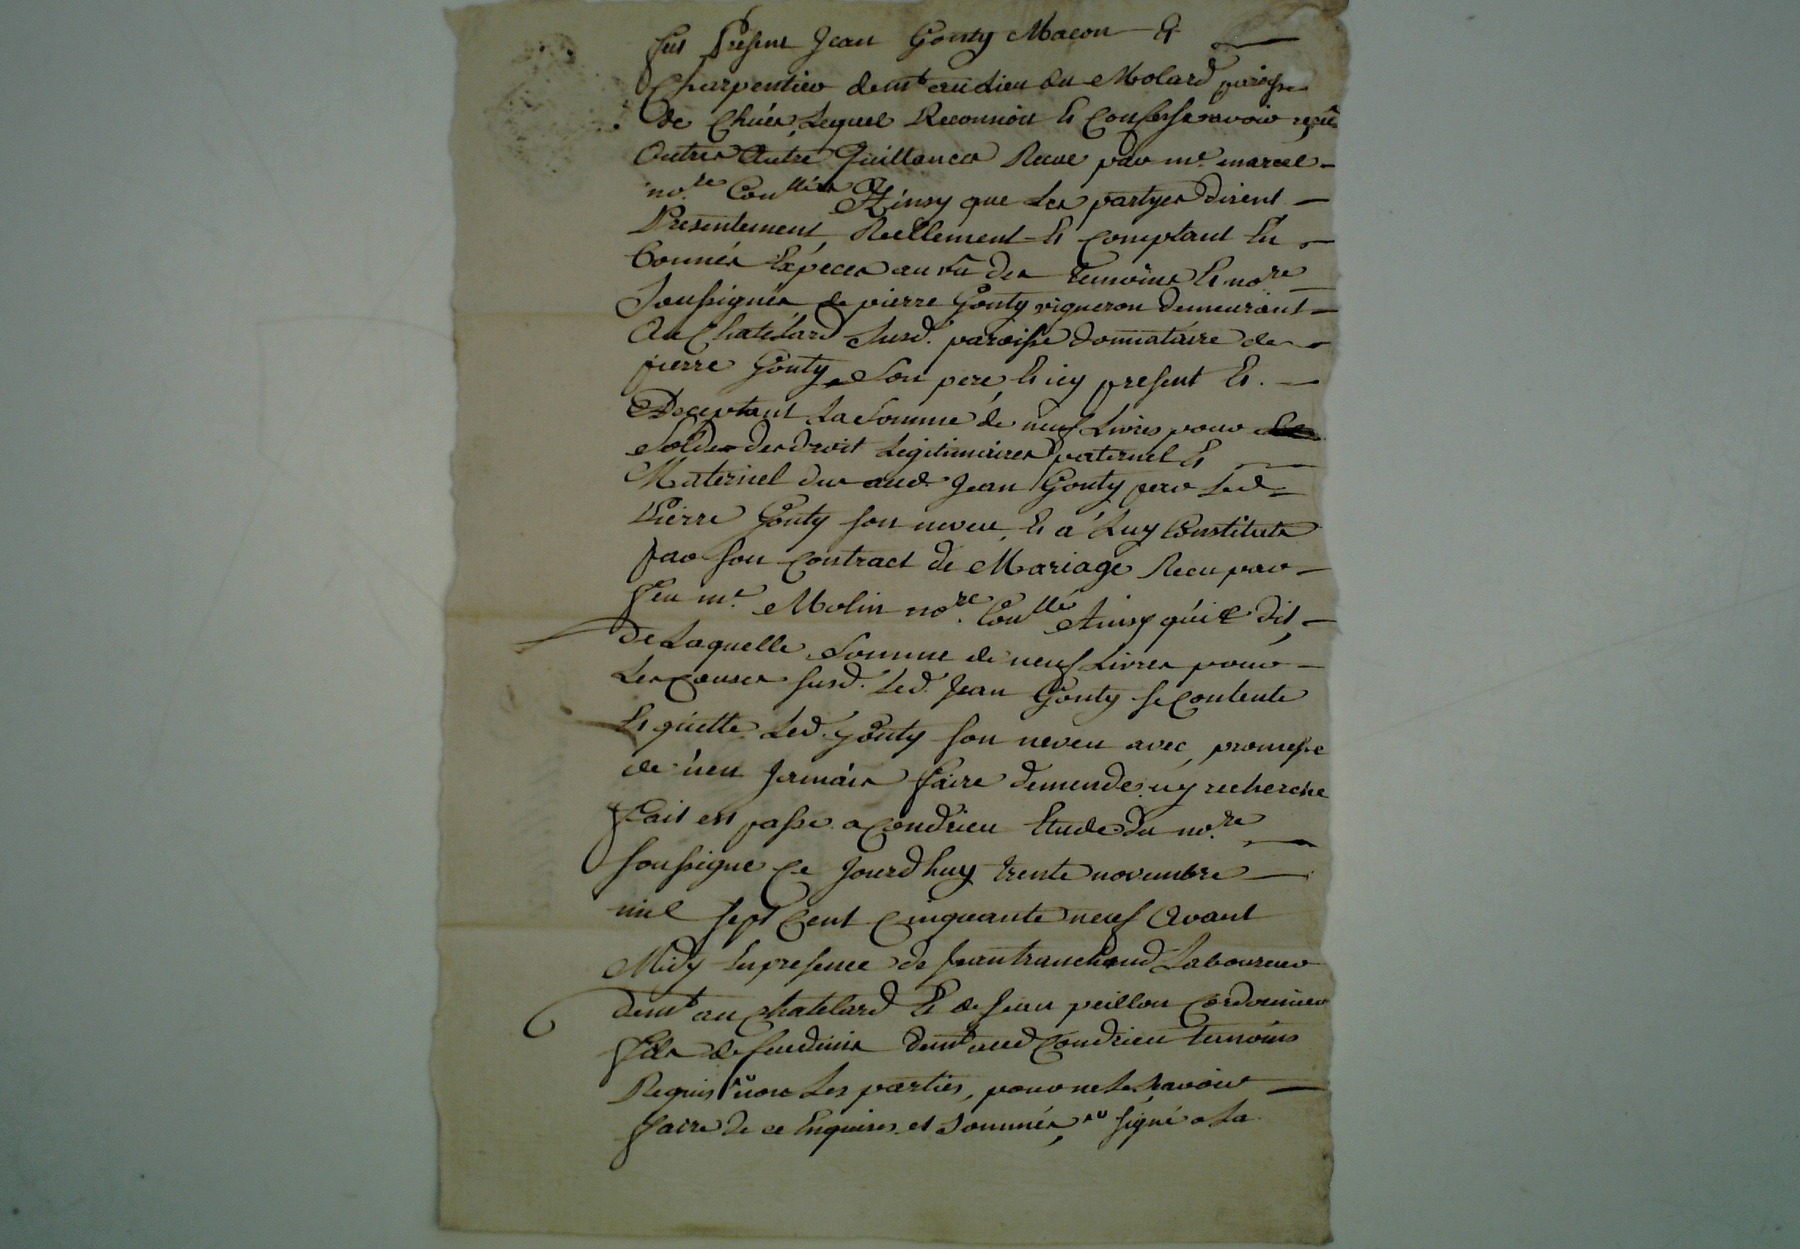 fut Présent Jean Gonty Macon Et
Charpentier demt au lieu du Molard paroisse
de Chués, Lequel Reconnoit Et Confesse avoir reçu
Outres Autre Quittances Recue par me. marcel
nore. Ainsy que Les partyes dirent
Présentement, Réellement Et Comptant En
Bonnes Expeces au vû des Temoins Et nore
Soussignés de pierre Gonty vigneron demeurant
Au Chatelard susd. paroisse donnataire de
pierre Gonty Son pere, Et icy present Et.
Acceptant La Somme de neuf Livres pour
Solde des droit Legitimaires paternel Et
Maternel dus aud. Jean Gonty par Led
Pierre Gonty son neveu, Et a Luy Constitués
par son Contract de Mariage Recu par
feu me. Molin nore. Ainsy qu'il dit,
de Laquelle Somme de neuf Livres pour
Les Causes susd. Led. Jean Gonty se Contente
Et quitte Led. Gonty son neveu avec, promesse
de n'en jamais faire demende ny recherche
fait et passé a Condrieu Etude du nore
soussigné Ce Jourd'huy trente novembre
mil sept Cent Cinquante neuf Avant
Midy En presence de Jean tranchand Laboureur
demt au Chatelard Et de Jean peillon Cordonnier
fils de feu denis demt aud Condrieu temoins
Requis non Les parties, pour ne Le Scavoir
faire de ce Enquises et Sommés, signé a La